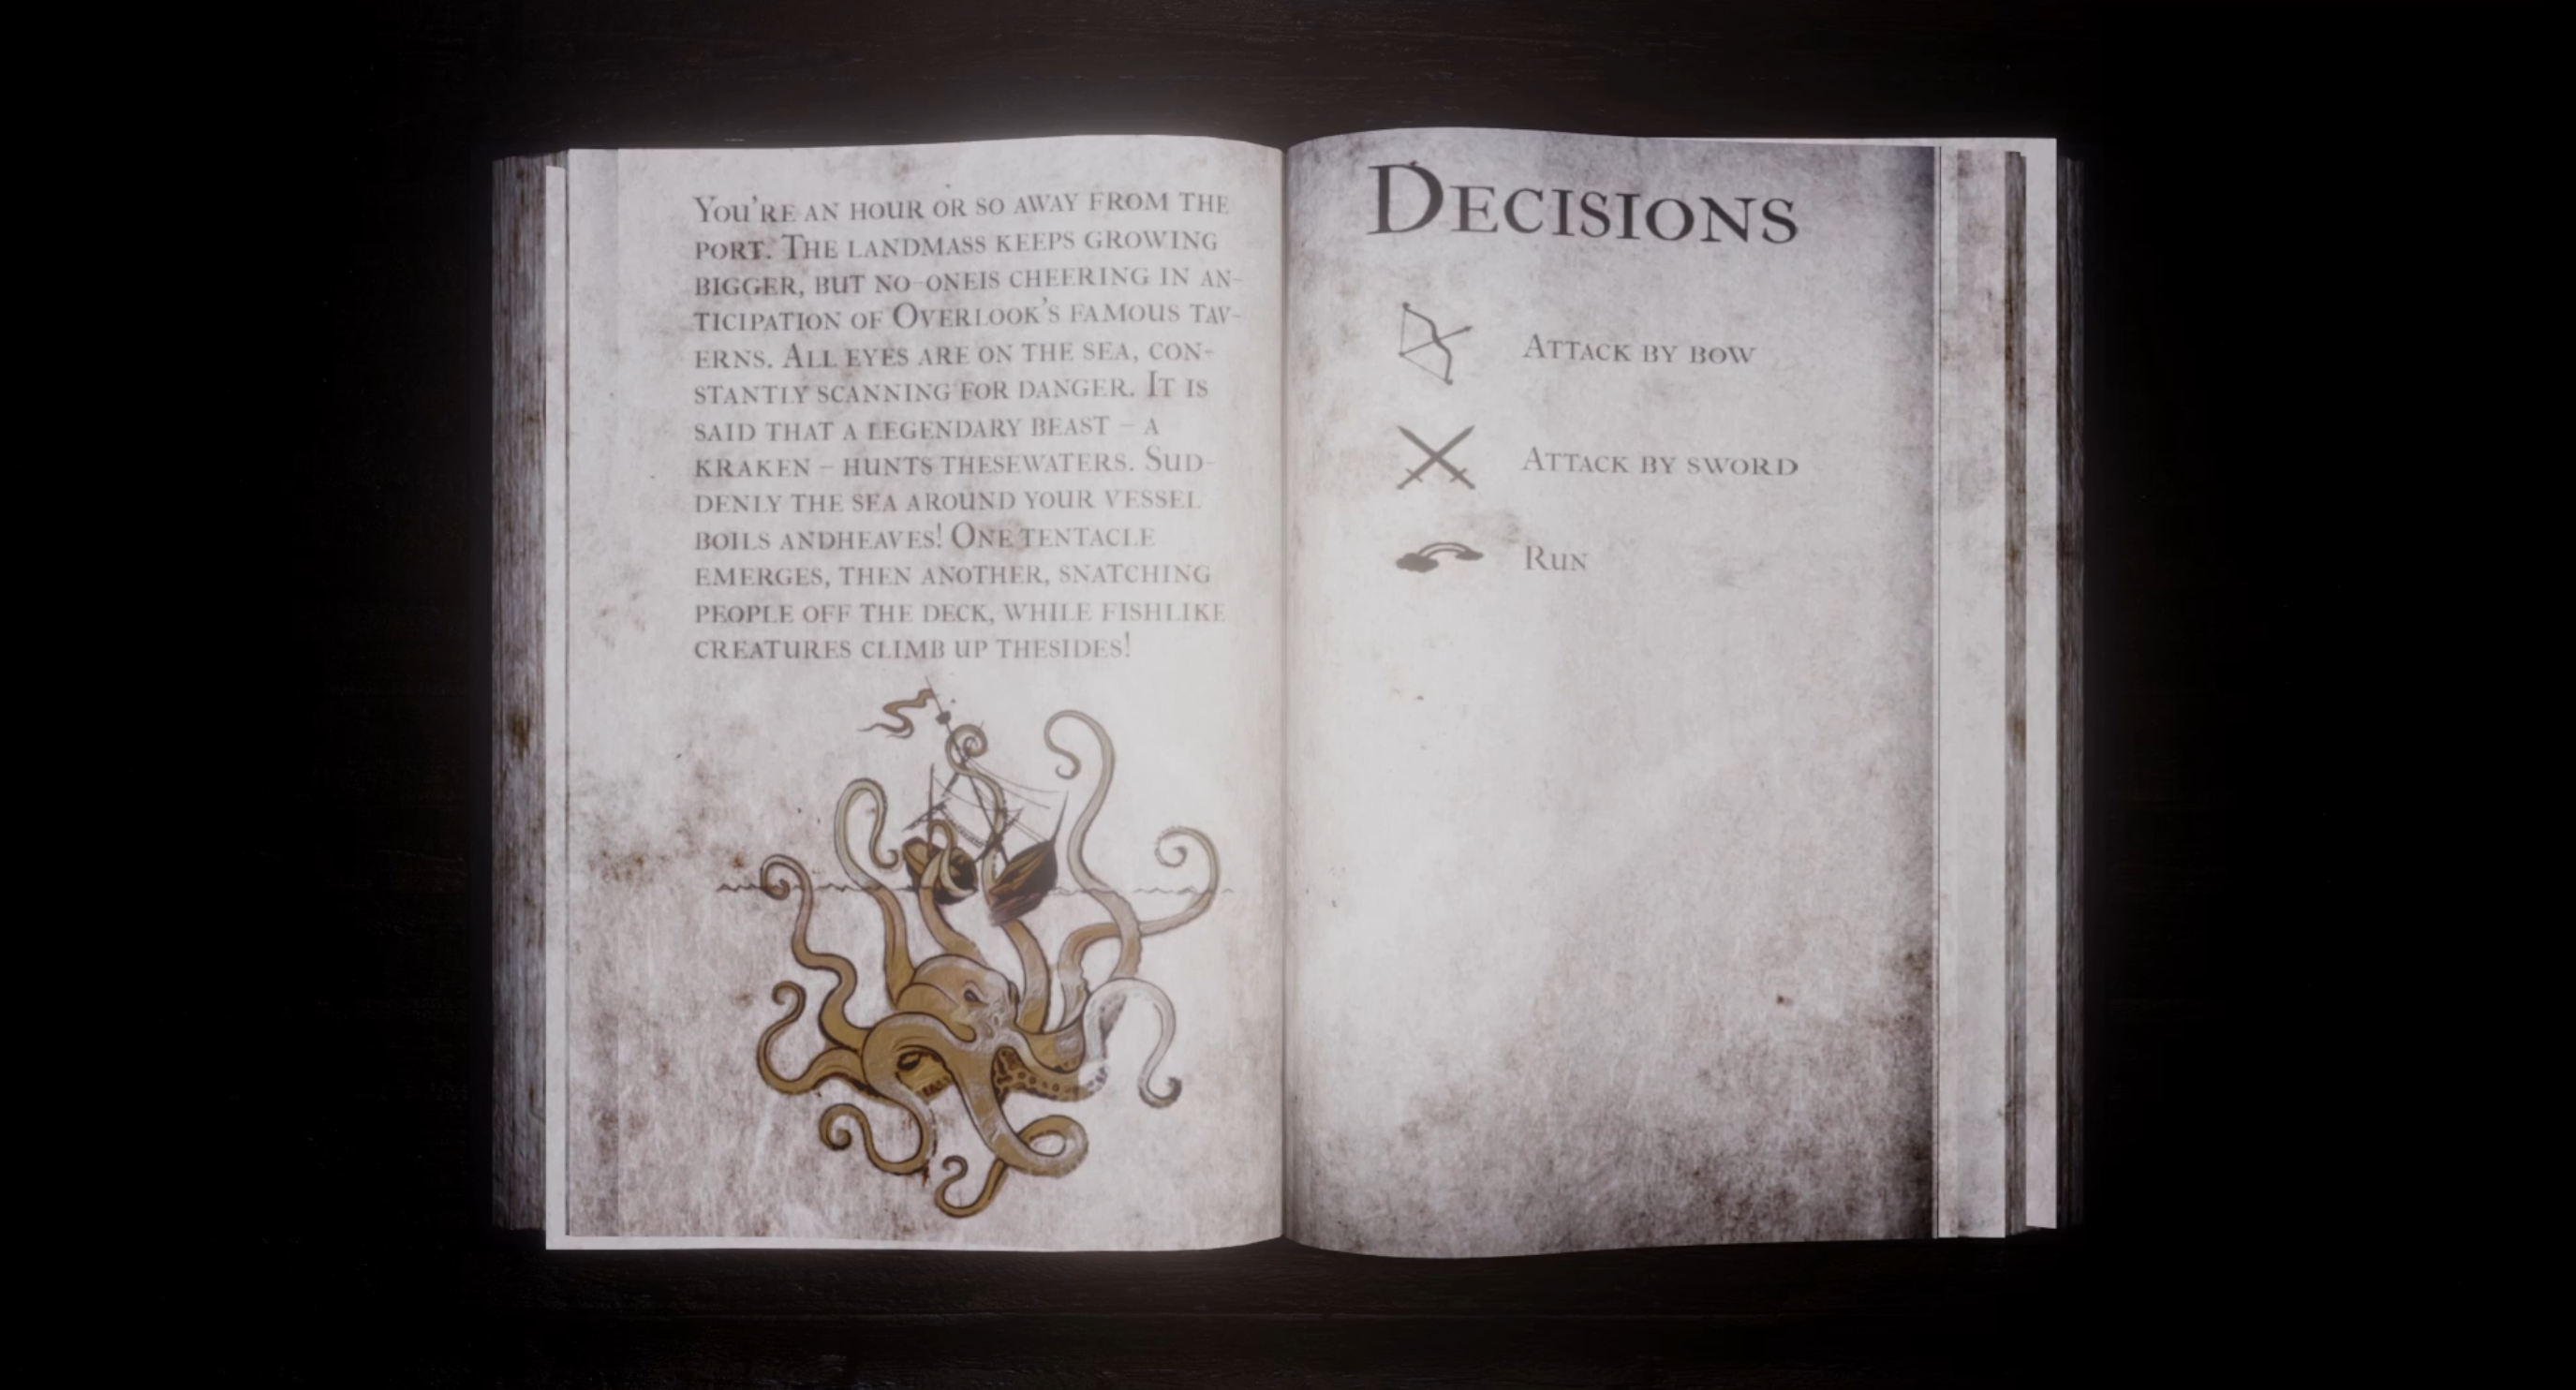 You're an hour or so away from the
port. The landmass keeps growing
bigger, but no-oneis cheering in an-
ticipation of Overlook's famous tav-
erns. All eyes are on the sea, con-
stantly scanning for danger. It is
said that a legendary beast – a
kraken – hunts thesewaters. Sud-
denly the sea around your vessel
boils andheaves! One tentacle
emerges, then another, snatching
people off the deck, while fishlike
creatures climb up thesides!
Decisions
Attack by bow
Attack by sword
Run